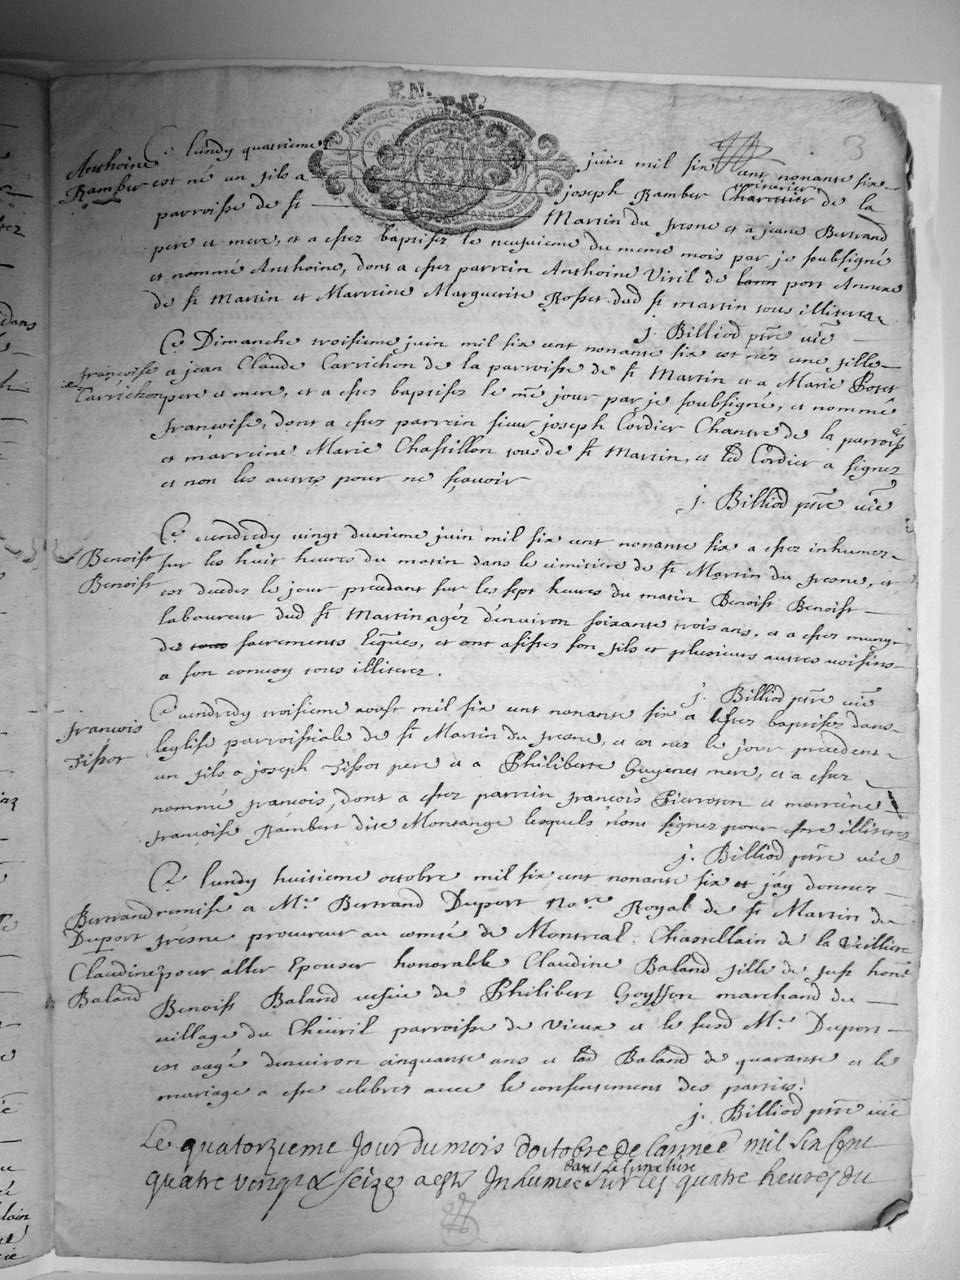 P.N. P.N.
3
Anthoine Rambert
Ce lundy quatrieme juin mil six cent nonante six
est né un fils a joseph Rambert voiturier de la
parroisse de st Martin du fresne et a jeane Bertrand
pere et mere, et a estez baptisez le neufuieme du meme mois par je soubsigné
et nommé Anthoine, dont a estez parrein Anthoine Viril de port Annexe
de st Martin et Marreine Marguerite Rosset dud st martin tous illiterez
j. Billiod ptre vic
françoise Carrichon
Ce Dimanche troisieme juin mil six cent nonante six est née une fille
a jean Claude Carrichon de la parroisse de st Martin et a Marie
pere et mere, et a estez baptisez le me jour par je soubsigné, et nommé
françoise, dont a estez parrein sieur joseph Cordier Chantre de la parroisse
et marreine Marie Chastillon tous de st Martin, et led Cordier a signez
et non les autres pour ne sçavoir
j. Billiod ptre vic
Benoist Benoist
Ce vendredy vingt deuxieme juin mil six cent nonante six a estez inhumez
sur les huit heures du matin dans le cimitiere de st Martin du fresne, et
est decedez le jour precedant sur les sept heures du matin Benoist Benoist
laboureur dud st Martin agéz d'enuiron soixante trois ans, et a estez muny
des sacrements, et ont assistez son fils et plusieurs autres voisins
a son convoy tous illiterez.
j. Billiod ptre vic
françois Tissot
Ce vendredy troisieme aoust mil six cent nonante six a estez baptisez dans
leglise parroissiale de st Martin du fresne, et est nez le jour precedent
un fils a joseph Tissot pere et a Philiberte Guyenet mere, et a estez
nommé françois, dont a estez parrein françois Pierroson et marreine
françoise Rambert dite Monsange lesquels n'ont signez pour estre illiterez
j. Billiod ptre vic
Bertrand Duport
Claudine Baland
Ce lundy huitieme octobre mil six cent nonante six et j'ay donnez
remise a Mr. Bertrand Duport Nore Royal de st Martin du
fresne procureur au comté de Montreal, Chastellain de la Veilliere
pour aller Epouser honorable Claudine Baland fille de fust honé
Benoist Baland vefue de Philibert Goyffon marchand du
village du Cheuril parroisse de Vieux et le susd Mr. Duport
est aagé denuiron cinquante ans et lad Baland de quarante et le
mariage a esté celebrez auec le consentement des parties.
j. Billiod ptre vic
Le quatorzieme Jour du mois doctobre de Lannée mil six cent
quatre vingt & seize a esté Inhumée dans le cimetiere sur les quatre heures du